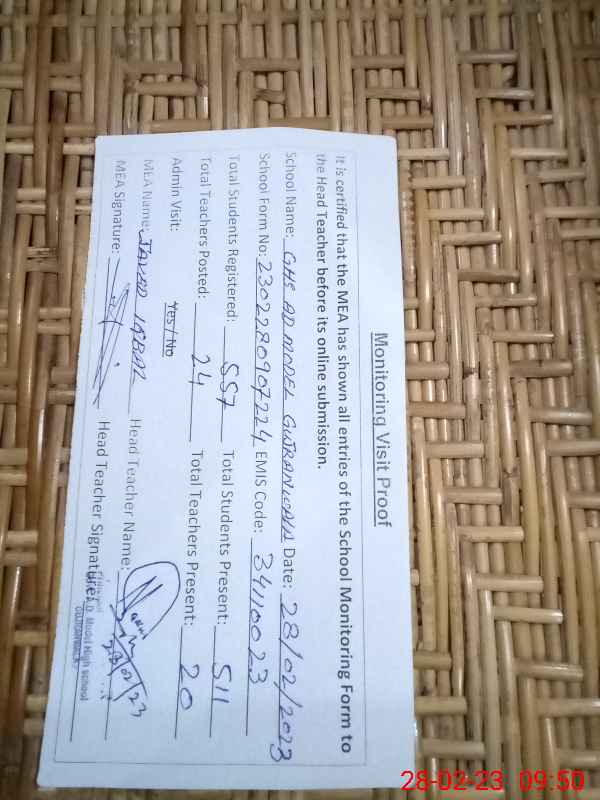 Monitoring Visit Proof
It is certified that the MEA has shown all entries of the School Monitoring Form to
the Head Teacher before its online submission.
School Name: GHS AD MODEL GUJRANWALA Date: 28/02/2023
School Form No: 2302280907224 EMIS Code: 34110023
Total Students Registered: 557 Total Students Present: 511
Total Teachers Posted: 24 Total Teachers Present: 20
Admin Visit: Yes / No
MEA Name: JAVED IQBAL Head Teacher Name:
MEA Signature: Head Teacher Signature:
Principal
A.D. Model High school
GUJRANWALA
28-02-23 09:50